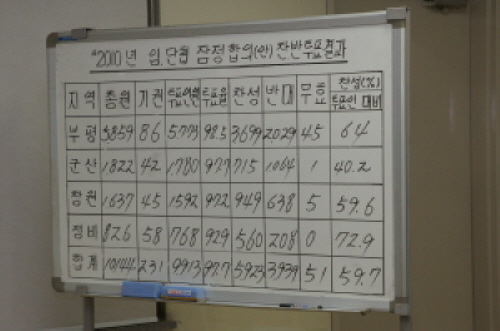 *2010년 임.단협 잠정합의(안) 찬반투표결과
지역 총원 기권 투표인원 투표율 찬성 반대 무효 찬성(%) 투표인 대비
부평 5859 86 5773 98.5 3,699 2029 45 64
군산 1822 42 1,780 97.7 715 1064 1 40.2
창원 1637 45 1592 97.2 949 638 5 59.6
정비 826 58 768 92.9 560 208 0 72.9
합계 10,144 231 9913 97.7 5923 3,939 51 59.7